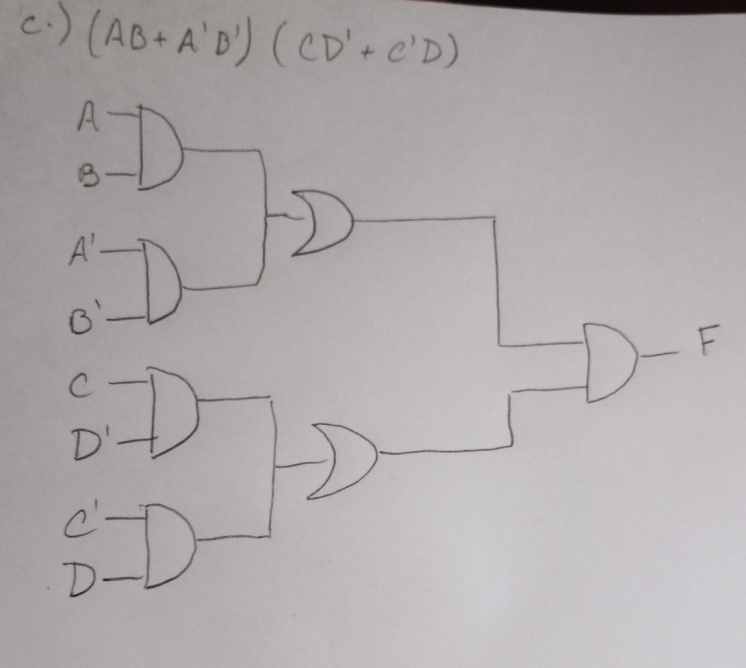 c.) (AB + A'B') (CD' + C'D)
A
B
A'
B'
C
D'
C'
D
F